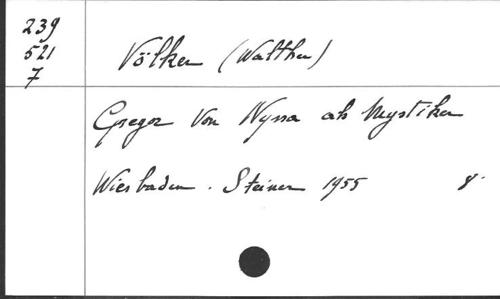 239
521
7
Völker (Walther)
Gregor von Nyssa als Mystiker
Wiesbaden . Steiner 1955 8°